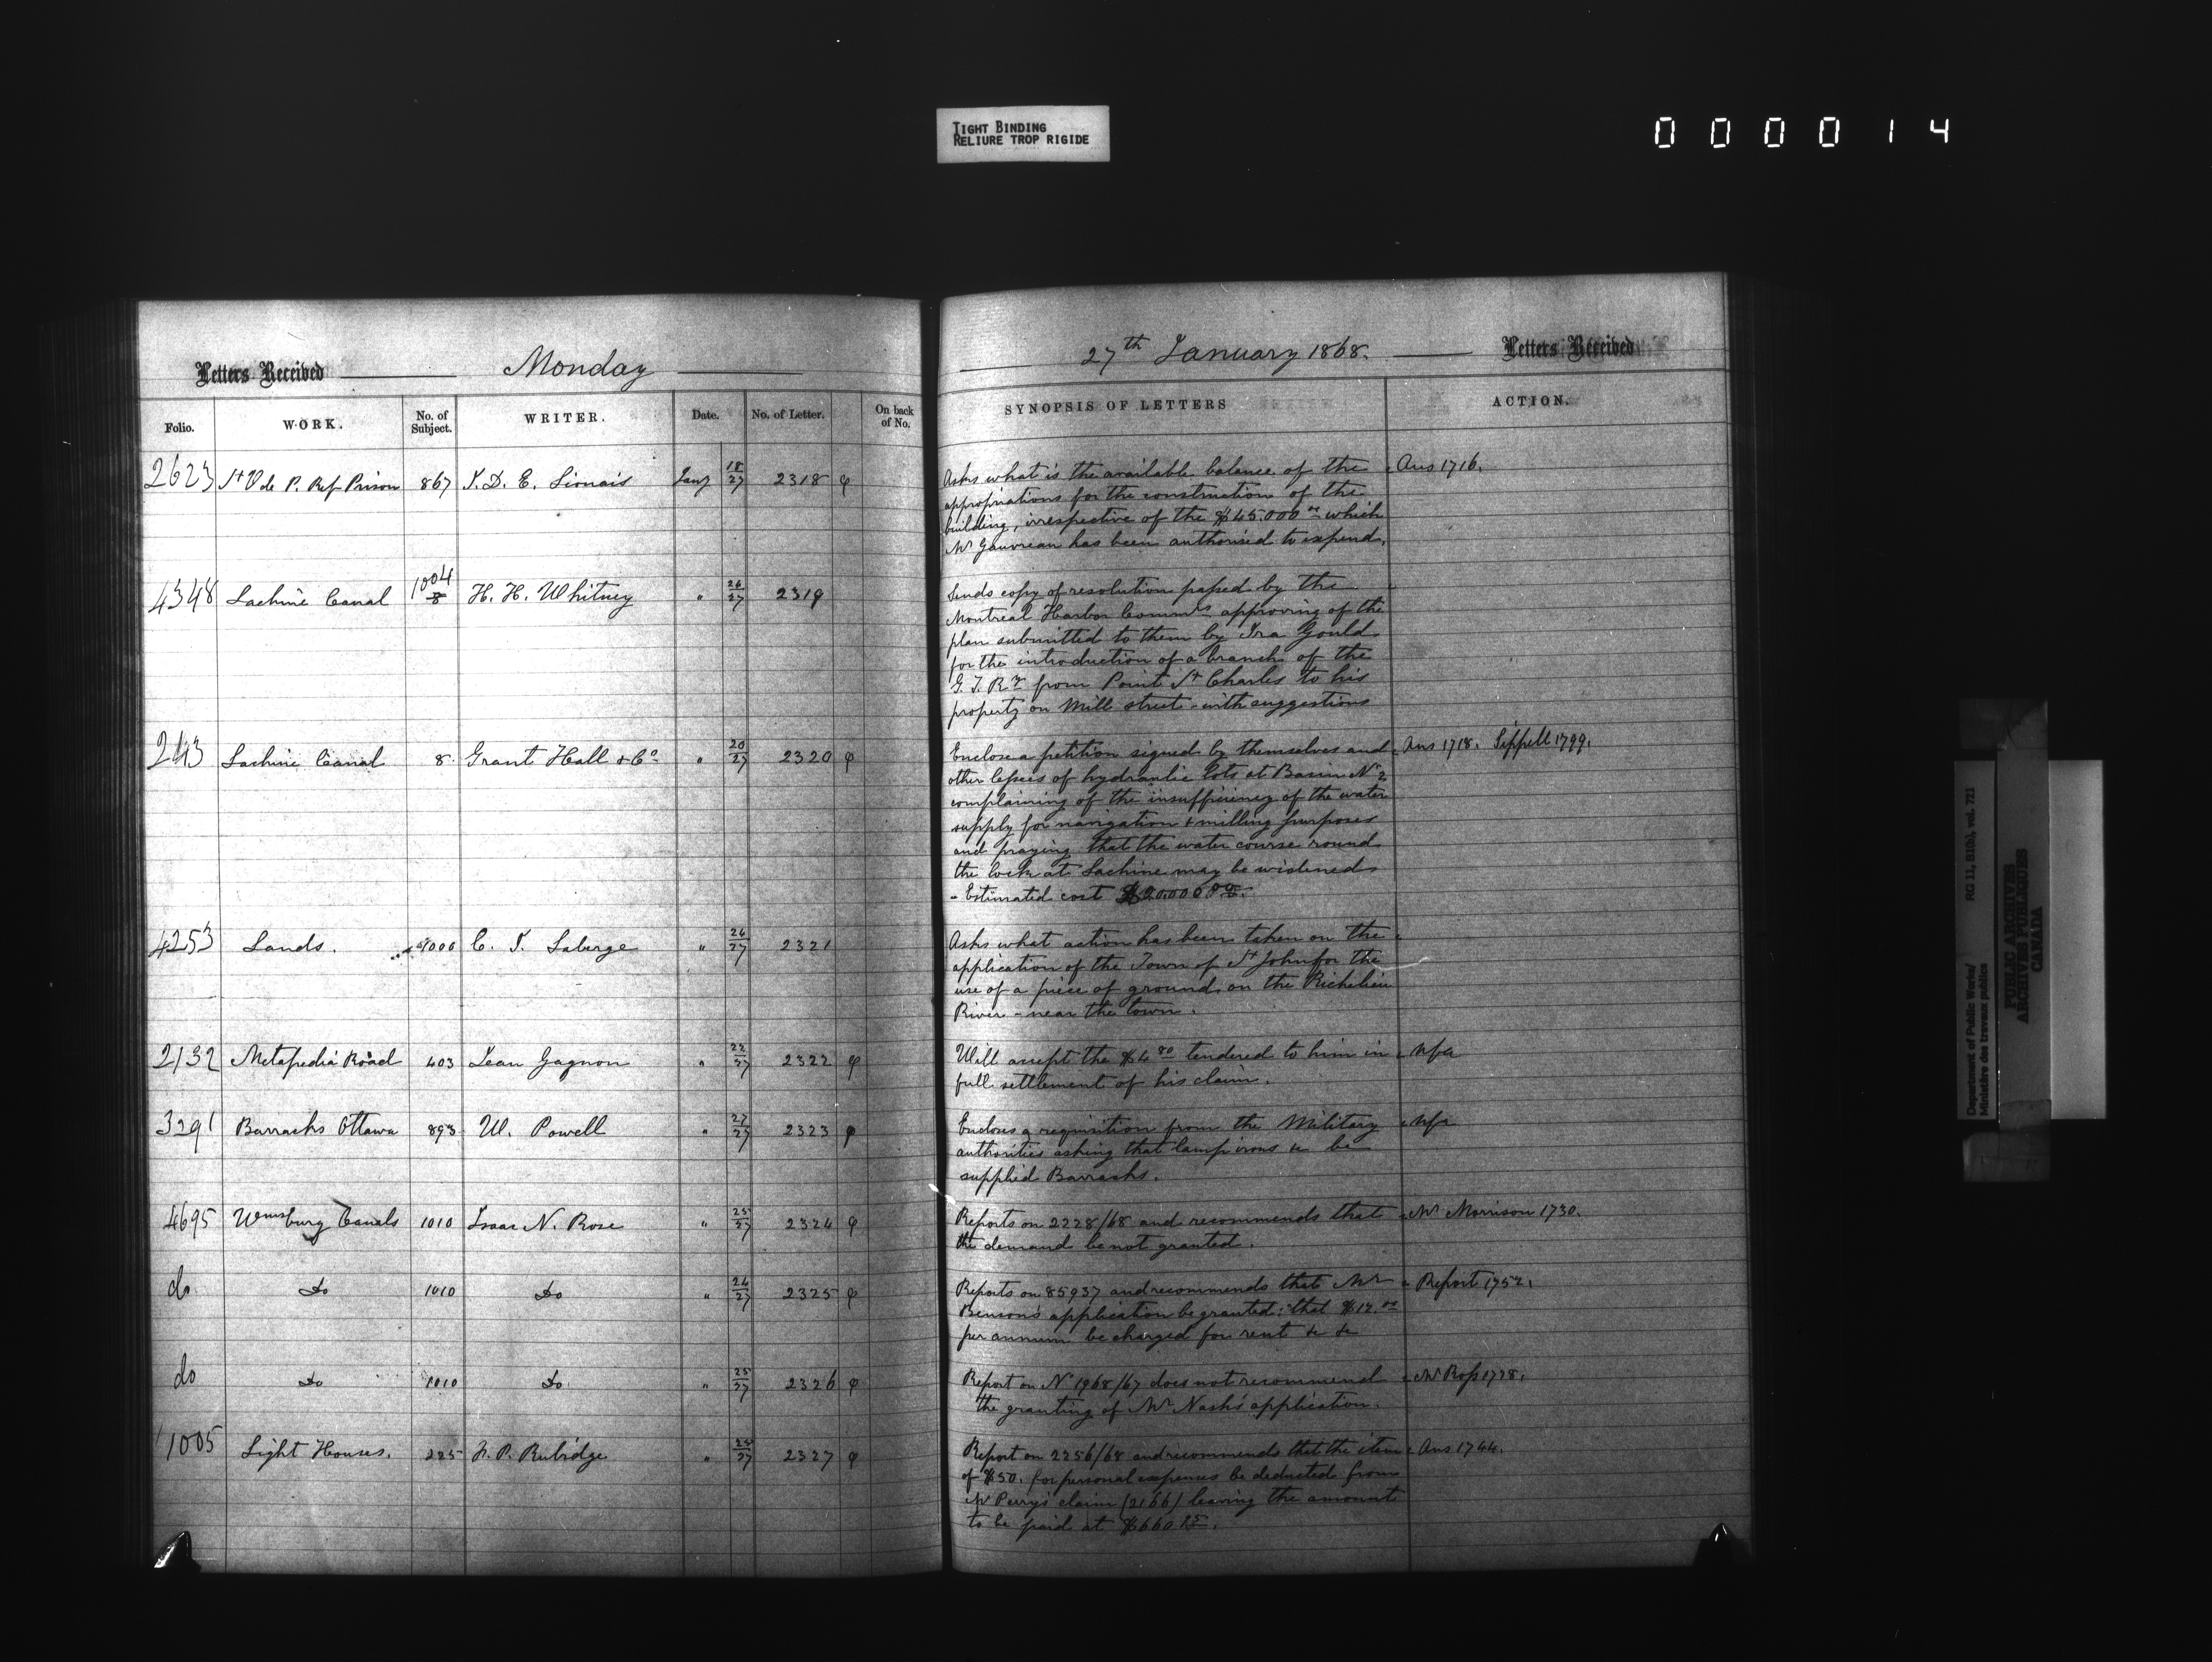 TIGHT BINDING
RELIURE TROP RIGIDE
0 0 0 0 1 4
Letters Received Monday
27th January 1868. Letters Received
Folio. WORK. No. of Subject. WRITER. Date. No. of Letter. On back of No. SYNOPSIS OF LETTERS ACTION.
2623 St V de P. Ref Prison 867 J. D. E. Lionais Jany 18/27 2318 φ
Asks what is the available balance of the Ans 1716.
appropriations for the construction of the
building, irrespective of the $45.000 00 which
Mr Gauvreau has been authorised to expend.
4348 Lachine Canal 1004 8 H. H. Whitney " 26/27 2319
Sends copy of resolution passed by the
Montreal Harbor Commrs approving of the
plan submitted to them by Ira Gould
for the introduction of a branch of the
G. T. Ry from Point St Charles to his
property on Mill street - with suggestions
243 Lachine Canal 8 Grant Hall & Co " 20/27 2320 φ
Enclose a petition signed by themselves and Ans 1718. Sippell 1799.
other lessees of hydraulic lots at Basin No 2
complaining of the insufficiency of the water
supply for navigation & milling purposes
and praying that the water course round
the lock at Lachine may be widened
- Estimated cost $20.000 00.
4253 Lands. 1000 C. J. Laberge " 26/27 2321
Asks what action has been taken on the
application of the Town of St John for the
use of a piece of ground on the Richelieu
River - near the town.
2132 Metapedia Road 403 Jean Gagnon " 22/27 2322 φ
Will accept the $4 80 tendered to him in nfa
full settlement of his claim.
3291 Barracks Ottawa 893 W. Powell " 27/27 2323 φ
Encloses a requisition from the Military nfa
authorities asking that lamp irons &c be
supplied Barracks.
4695 Wmsburg Canals 1010 Isaac N. Rose " 25/27 2324 φ
Reports on 2228/68 and recommends that Mr Morrison 1730.
the demand be not granted.
do Do 1010 Do " 24/27 2325 φ
Reports on 85937 and recommends that Mr Report 1752.
Benson's application be granted: that $12.00
per annum be charged for rent &c &c
do Do 1010 Do " 25/27 2326 φ
Report on N 1968/67 does not recommend Mr Ross 1728.
the granting of Mr Nash's application.
1005 Light Houses. 225 F. P. Rubidge " 25/27 2327 φ
Report on 2256/68 and recommends that the item Ans 1744.
of $50. for personal expenses be deducted from
Mr Perry's claim (2166) leaving the amount
to be paid at $660 25.
Department of Public Works/ RG 11, B1(a), vol. 721
Ministère des travaux publics
PUBLIC ARCHIVES
ARCHIVES PUBLIQUES
CANADA